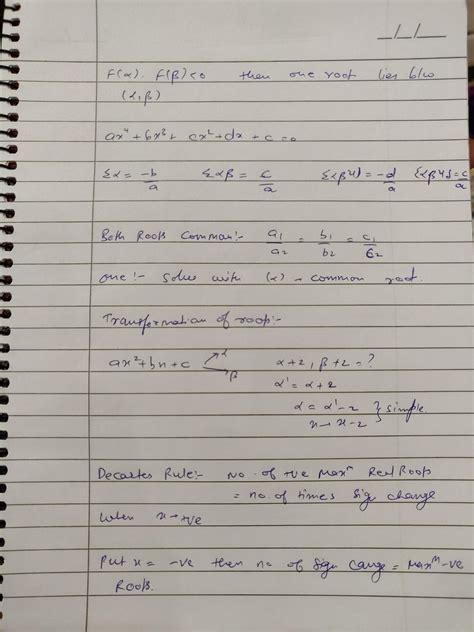 _/_/_
F(α). F(β)<0 then one root lies b/w
(α,β)
ax⁴+bx³+ cx²+dx+c=0
Σα = -b/a Σαβ = c/a Σαβγ = -d/a Σαβγδ = c/a
Both Roots Common:- a₁/a₂ = b₁/b₂ = c₁/c₂
one:- solve with (α) - common root.
Transformation of roots:-
ax²+bx+c α β α+2, β+2 = ?
α' = α+2
α = α'-2 } simple
x→x-2
Decartes Rule:- No. of +ve Maxᵐ Real Roots
= no. of times sign change
when x→+ve
Put x = -ve then no of sign cange = Maxᵐ -ve
Roots.